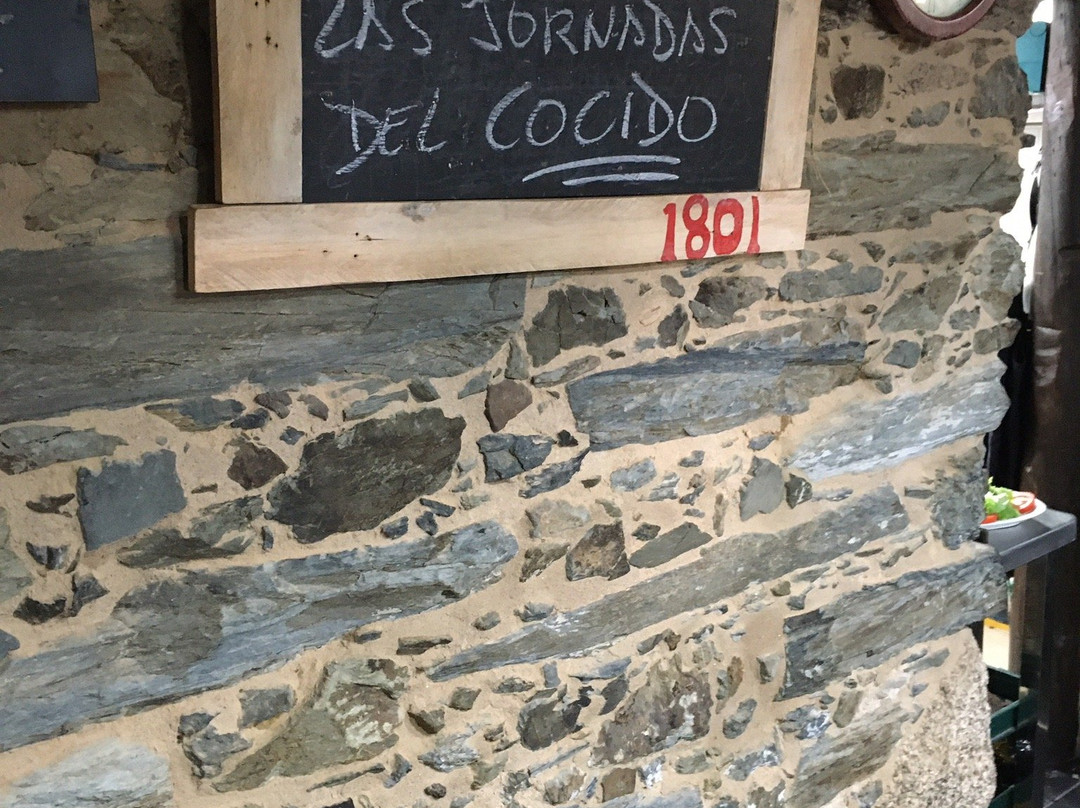 LAS JORNADAS
DEL COCIDO
1801